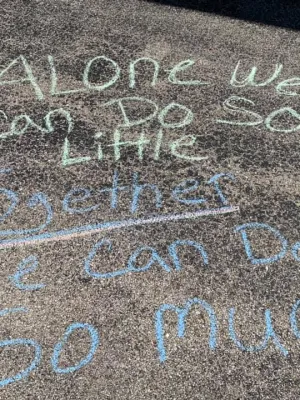 ALONE We
Can Do So
Little
Together
We Can Do
So Muc